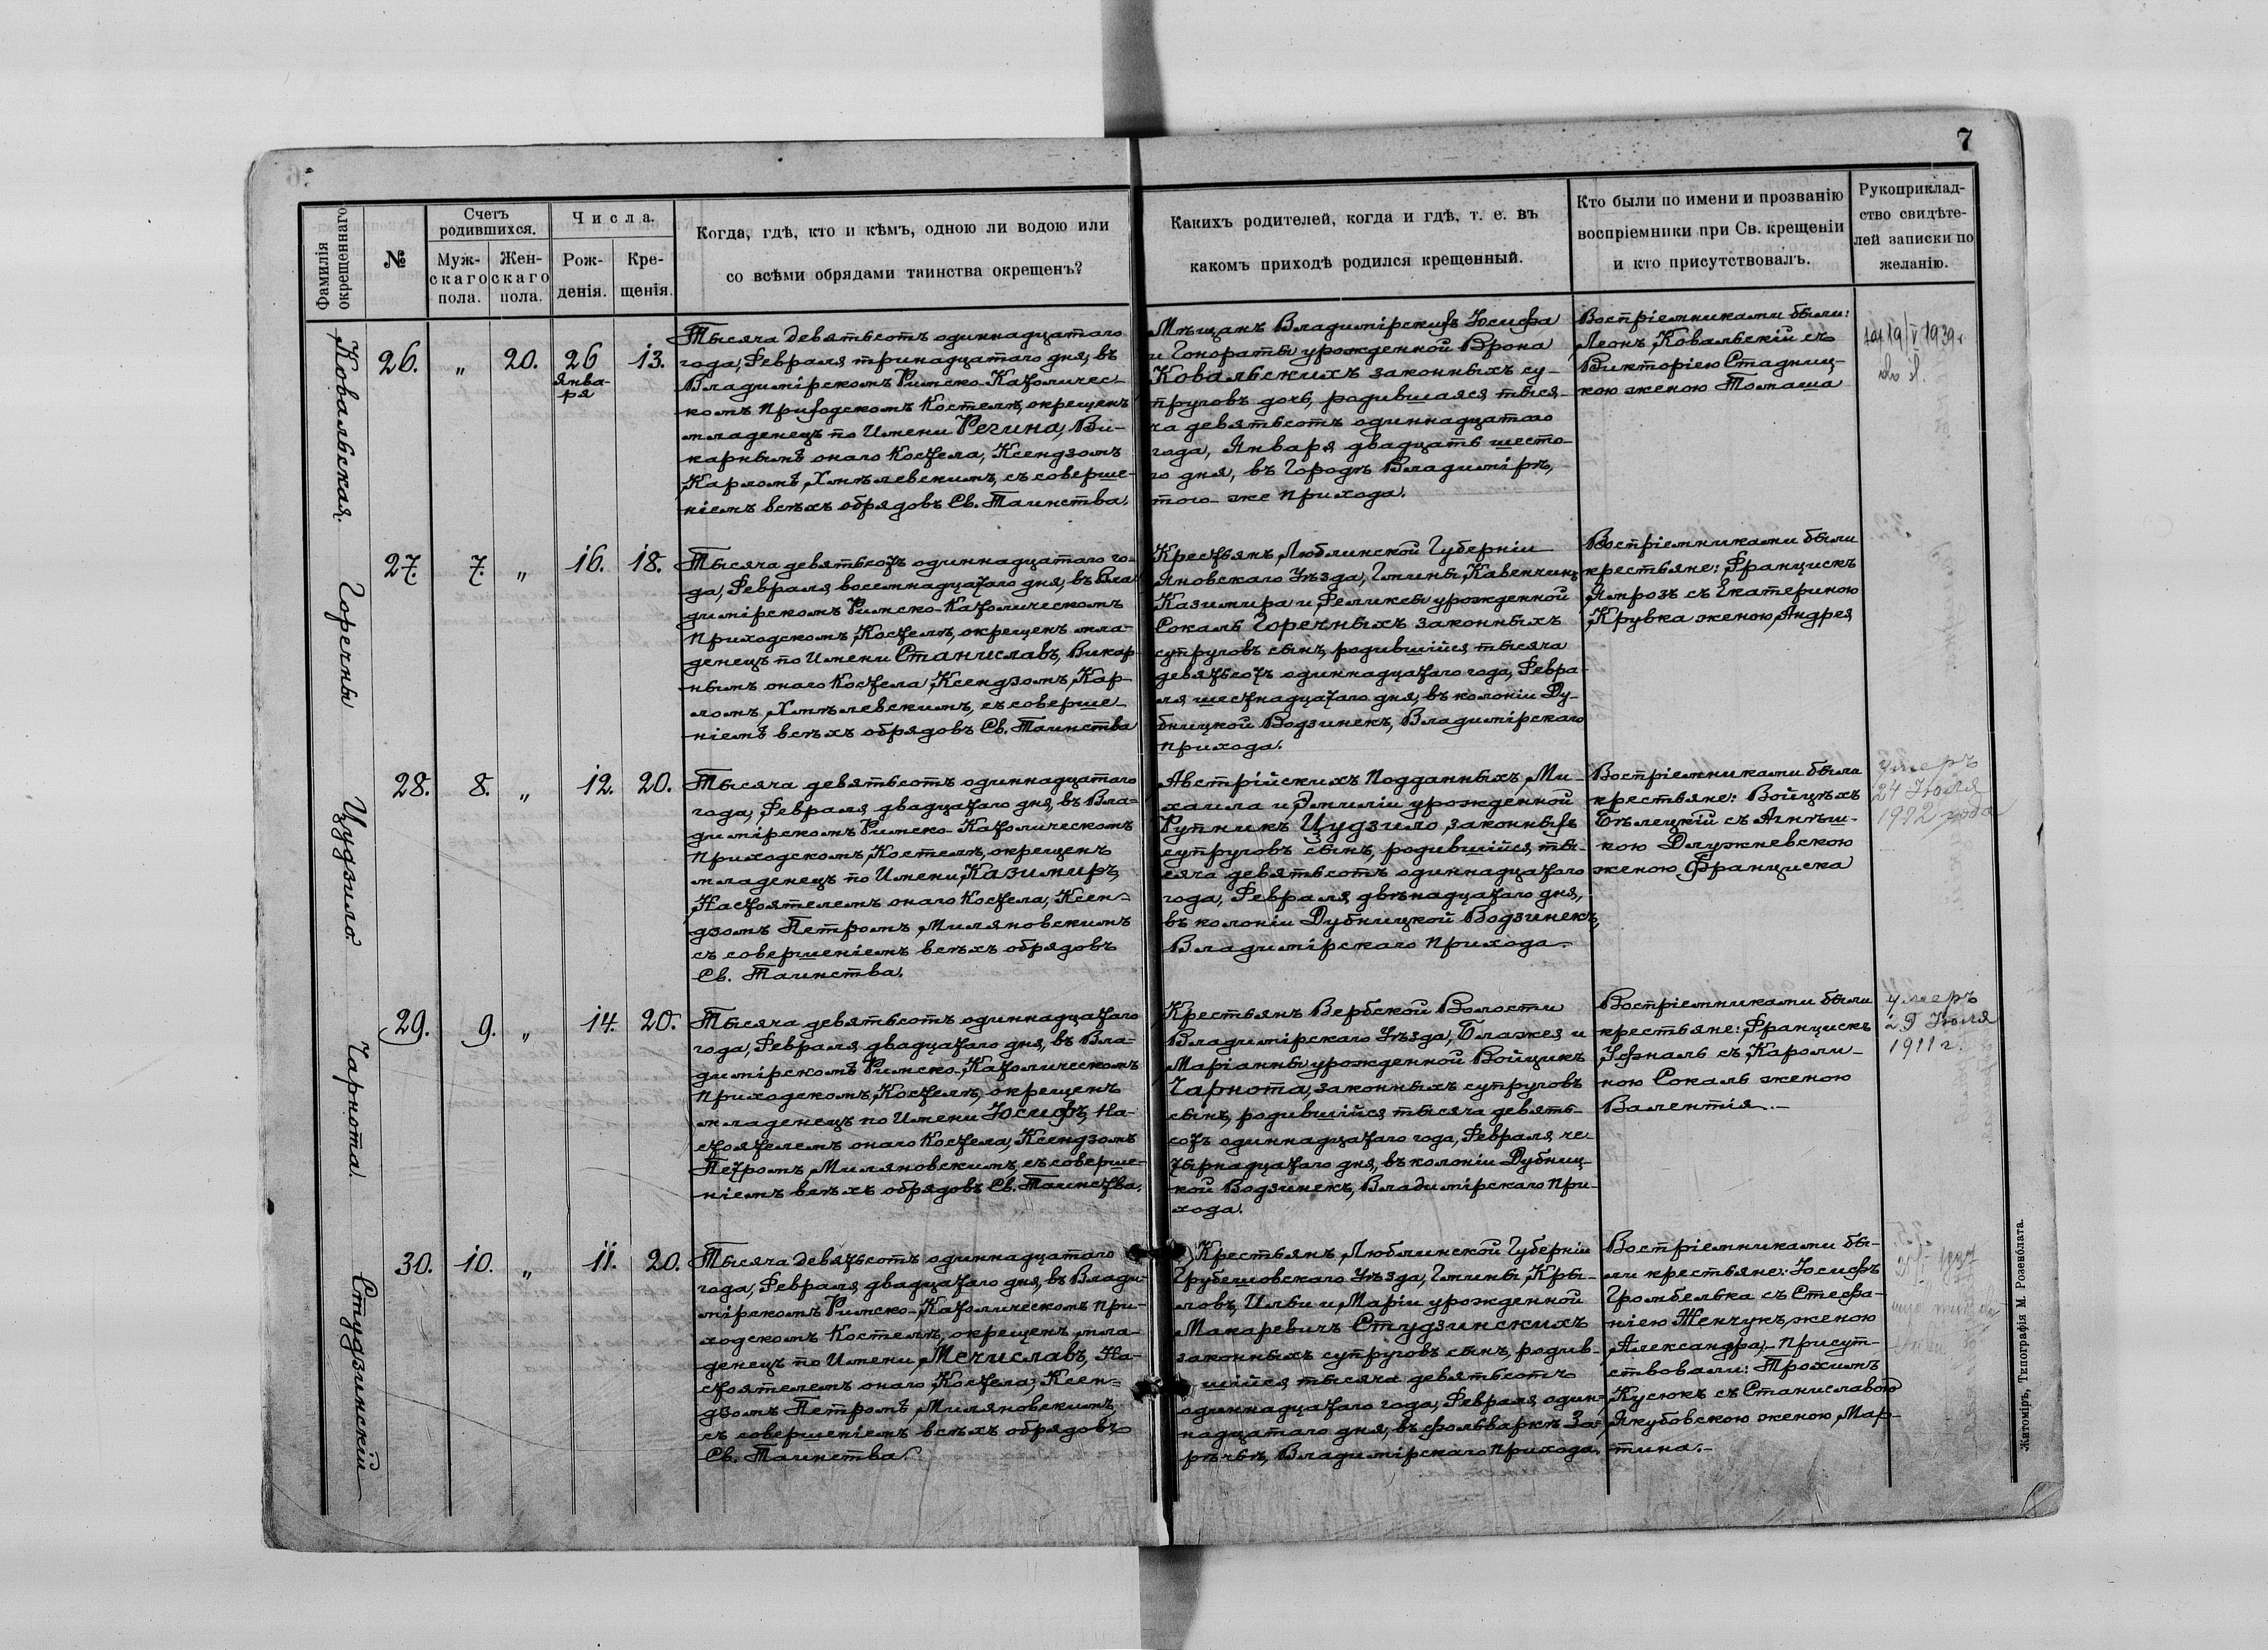 7
Фамилія
окрещеннаго
№
Счетъ
родившихся.
Муж-
скаго
пола.
Жен-
скаго
пола.
Числа.
Рож-
денія.
Кре-
щенія.
Когда, гдѣ, кто и кѣмъ, одною ли водою или
со всѣми обрядами таинства окрещенъ?
Какихъ родителей, когда и гдѣ, т. е. въ
какомъ приходѣ родился крещенный.
Кто были по имени и прозванію
воспріемники при Св. крещеніи
и кто присутствовалъ.
Рукоприклад-
ство свидѣте-
лей записки по
желанію.
Ковальская.
26.
„
20.
26
Янва-
ря
13.
Тысяча девятьсотъ одиннадцатаго
года, Февраля тринадцатаго дня, въ
Владимірскомъ Римско-Католичес-
комъ приходскомъ Костелѣ, окрещенъ
младенецъ по Имени Регина, Ви-
карнымъ онаго Костела, Ксендзомъ
Карломъ Хмѣлевскимъ, съ соверше-
ніемъ всѣхъ обрядовъ Св. Таинства.
Мѣщанъ Владимірскихъ Юсифа
и Гонораты урожденной Врона
Ковальскихъ законныхъ су-
пруговъ дочь, родившаяся тыся-
ча девятьсотъ одиннадцатаго
года, Января двадцать шесто-
го дня, въ Городѣ Владимірѣ,
того-же прихода.
Воспріемниками были:
Леонъ Ковальскій съ
Викторіею Стадниц-
кою женою Томаша
19/V 1939 г
Горечны
27.
7.
„
16.
18.
Тысяча девятьсотъ одиннадцатаго го-
да, Февраля восемнадцатаго дня, въ Вла-
димірскомъ Римско-Католическомъ
Приходскомъ Костелѣ, окрещенъ мла-
денецъ по Имени Станиславъ, Викар-
нымъ онаго Костела Ксендзомъ Кар-
ломъ Хмѣлевскимъ, съ соверше-
ніемъ всѣхъ обрядовъ Св. Таинства
Крестьянъ Люблинской Губерніи
Яновскаго Уѣзда, Гмины Кавенчинъ
Казимира и Феликсы урожденной
Сокаль Горечныхъ законныхъ
супруговъ сынъ, родившійся тысяча
девятьсотъ одиннадцатаго года, Февра-
ля шестнадцатаго дня, въ колоніи Ду-
бницкой Водзинекъ, Владимірскаго
прихода.
Воспріемниками были
крестьяне: Францискъ
Ямрозъ съ Екатериною
Крувка женою Андрея
Цудзило.
28.
8.
„
12.
20.
Тысяча девятьсотъ одиннадцатаго
года, Февраля двадцатаго дня, въ Вла-
димірскомъ Римско-Католическомъ
Приходскомъ Костелѣ, окрещенъ
младенецъ по Имени Казимиръ,
Настоятелемъ онаго Костела, Ксен-
дзомъ Петромъ Миляновскимъ
съ совершеніемъ всѣхъ обрядовъ
Св. Таинства.
Австрійскихъ Подданныхъ, Ми-
хаила и Эмиліи урожденной
Рутникъ Цудзило, законныхъ
супруговъ сынъ, родившійся, ты-
сяча девятьсотъ одиннадцатаго
года, Февраля двѣнадцатаго дня,
въ колоніи Дубницкой Водзинекъ,
Владимірскаго прихода.
Воспріемниками были
крестьяне: Войцѣхъ
Бѣлецкій съ Агнѣш-
кою Длужневскою
женою Франциска
умеръ
24 Юля
1922 года
Чарнота.
29.
9.
„
14.
20.
Тысяча девятьсотъ одиннадцатаго
года, Февраля двадцатаго дня, въ Вла-
димірскомъ Римско-Католическомъ
Приходскомъ Костелѣ, окрещенъ
младенецъ по Имени Юсифъ, На-
стоятелемъ онаго Костела, Ксендзомъ
Петромъ Миляновскимъ, съ соверше-
ніемъ всѣхъ обрядовъ Св. Таинства.
Крестьянъ Вербской Волости
Владимірскаго Уѣзда, Блажея и
Маріанны урожденной Войцикъ
Чарнота, законныхъ супруговъ
сынъ, родившійся тысяча девять-
сотъ одиннадцатаго года, Февраля че-
тырнадцатаго дня, въ колоніи Дубниц-
кой Водзинекъ, Владимірскаго при-
хода.
Воспріемниками были
крестьяне: Францискъ
Уфналь съ Кароли-
ною Сокаль женою
Валентія.-
умеръ
29 Юля
1911 г.
Студзинскій
30.
10.
„
11.
20.
Тысяча девятьсотъ одиннадцатаго
года, Февраля двадцатаго дня, въ Влади-
мірскомъ Римско-Католическомъ при-
ходскомъ Костелѣ, окрещенъ мла-
денецъ по Имени Мечиславъ, На-
стоятелемъ онаго Костела, Ксен-
дзомъ Петромъ Миляновскимъ,
съ совершеніемъ всѣхъ обрядовъ
Св. Таинства.
Крестьянъ Люблинской Губерніи
Грубешовскаго Уѣзда, Гмины Кры-
ловъ, Ильи и Маріи урожденной
Макаревичъ Студзинскихъ
законныхъ супруговъ сынъ, родив-
шійся тысяча девятьсотъ
одиннадцатаго года, Февраля один-
надцатаго дня, въ фольваркѣ За-
рѣчьѣ, Владимірскаго прихода.
Воспріемниками бы-
ли крестьяне: Юсифъ
Громбелька съ Стефа-
ніею Женчукъ, женою
Александра, присут-
ствовали: Трохимъ
Кусюкъ съ Станиславою
Якубовскою женою Мар-
тина.-
Житоміръ, Типографія М. Розенблата.